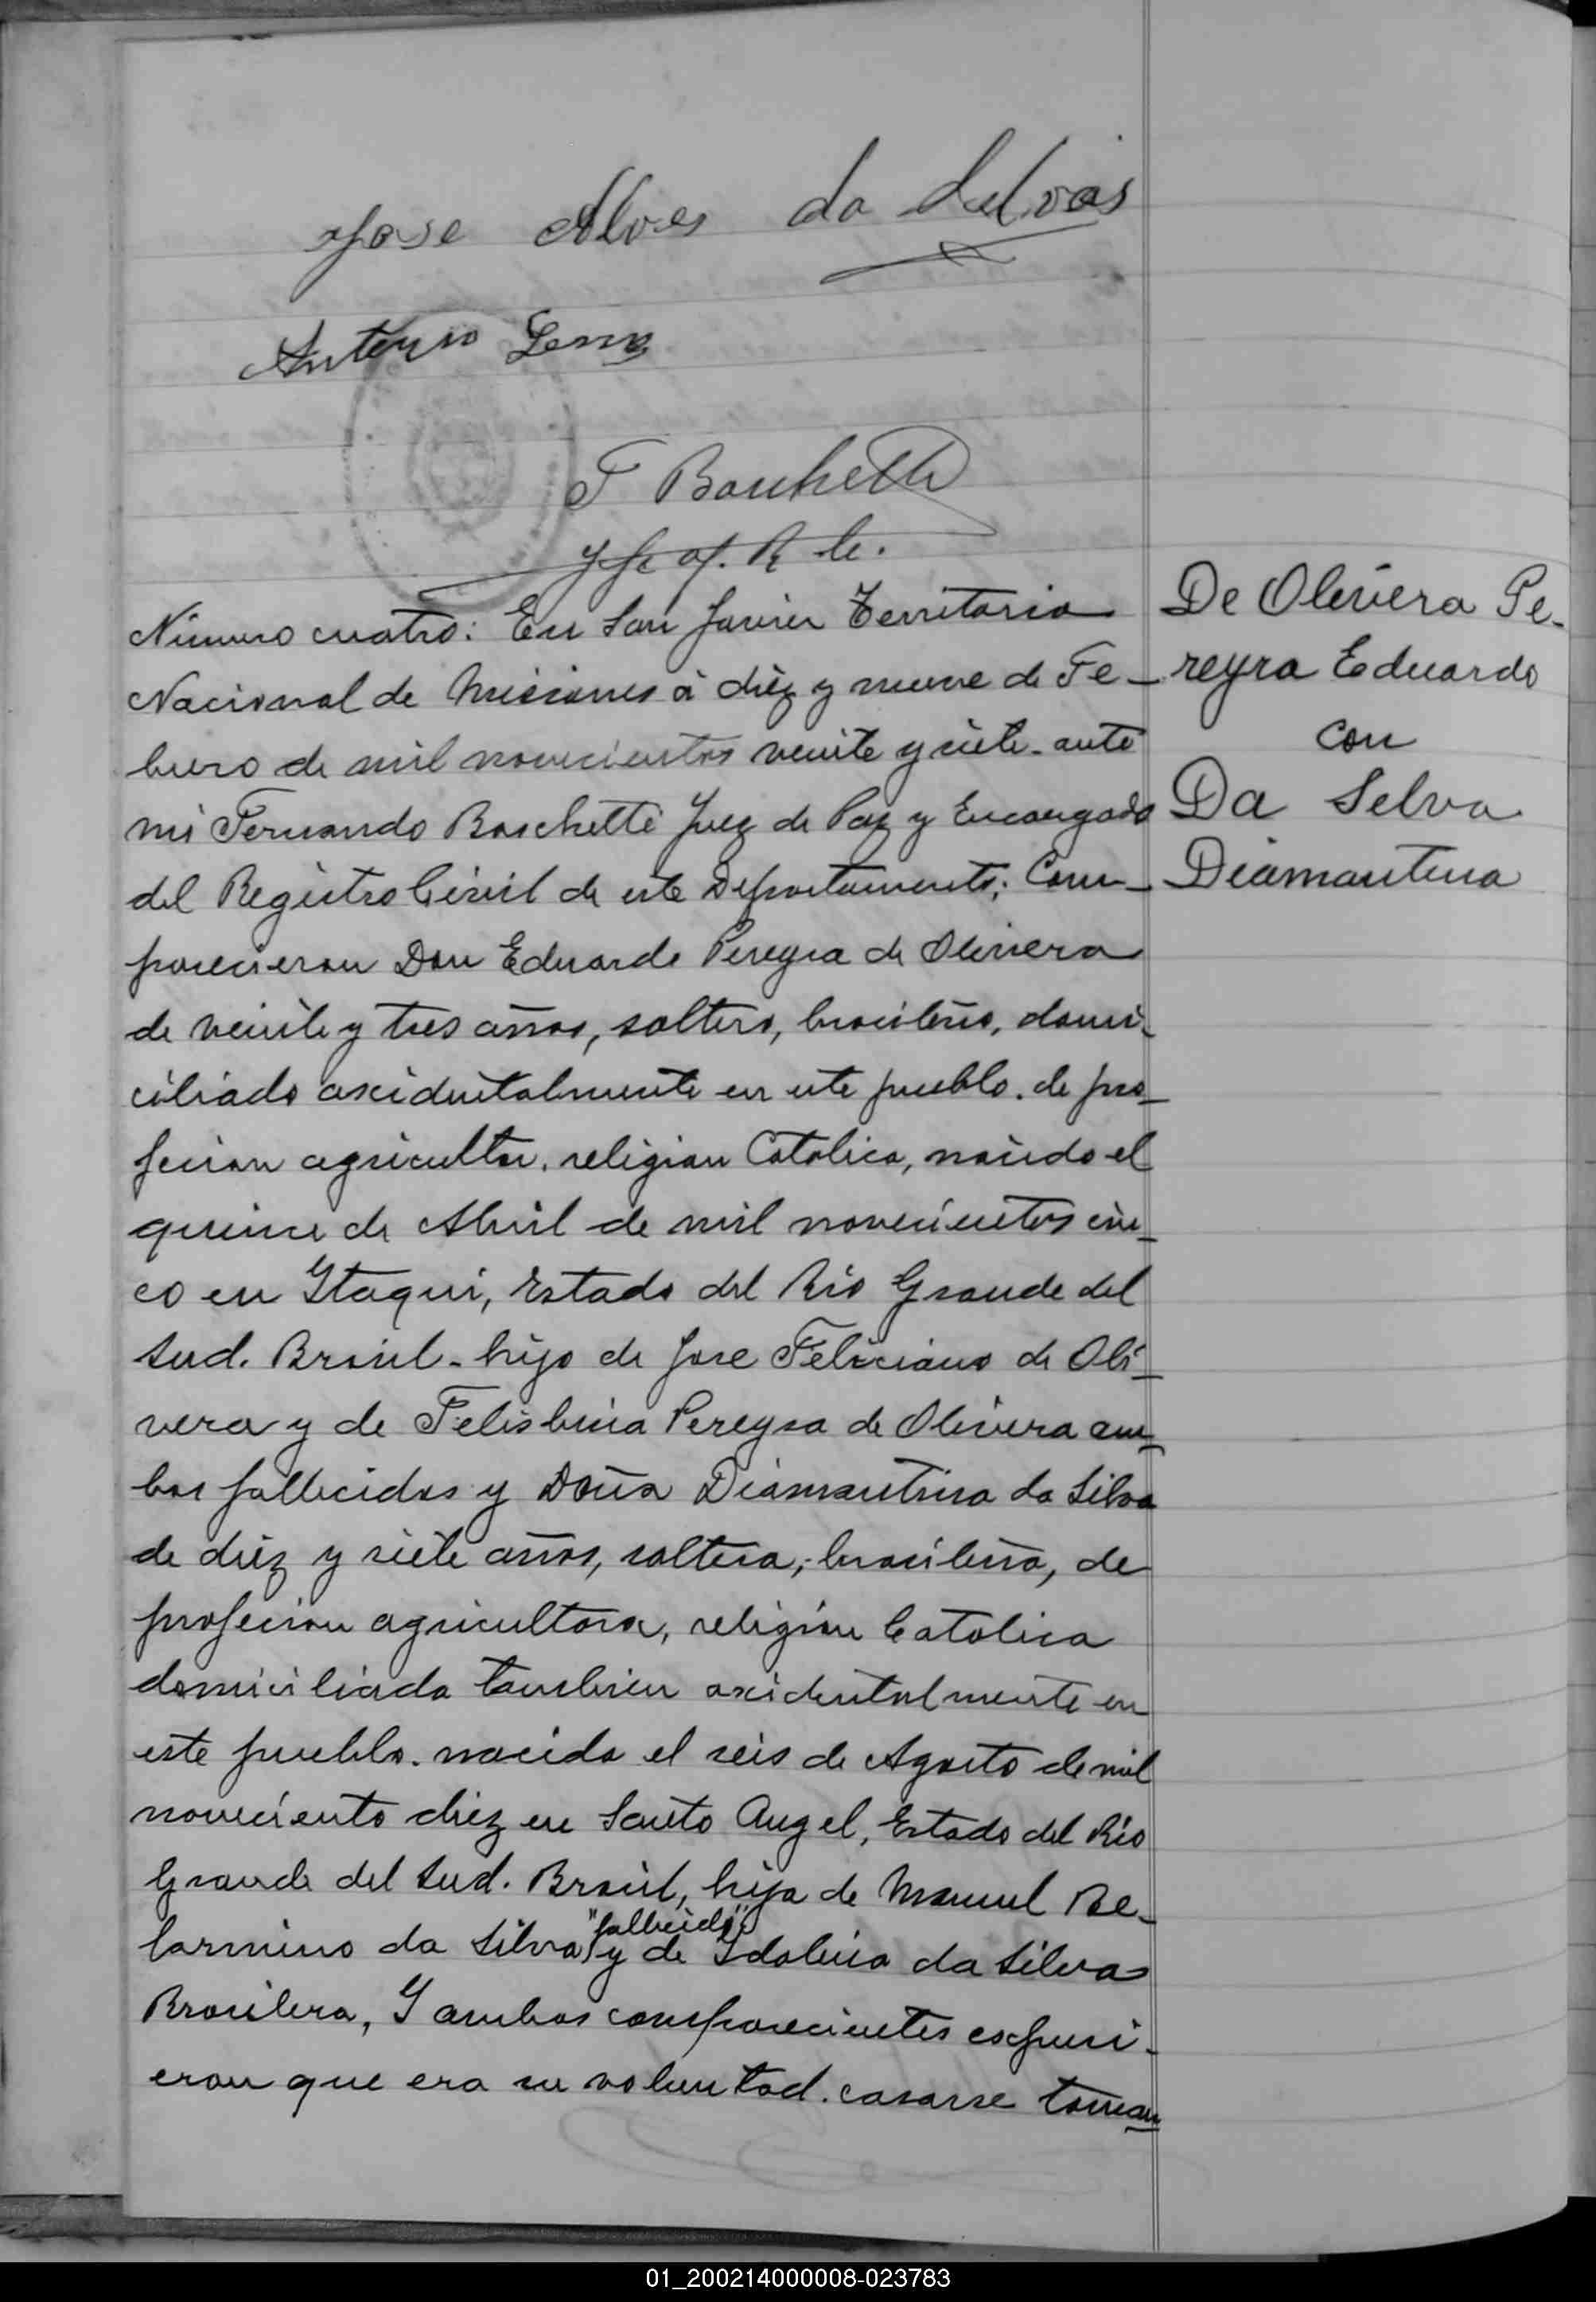 Jose Alves da Selvas
Antonio Lema
F Boschetti
Jefe of. R C.
Número cuatro: En San Javier Territorio
Nacional de Misiones á diéz y nueve de Fe-
brero de mil novecientos veinte y siete. ante
mi Fernando Boschetti Juez de Paz y Encargado
del Registro Civil de este Departamento; Com-
parecieron Don Eduardo Pereyra de Olivera
de veinte y tres años, soltero, brasileño, domi-
ciliado axidentalmente en este pueblo. de pro-
fecion agricultor, religion Catolica, nacido el
quince de Abril de mil novecientos cin-
co en Itaqui, Estado del Rio Grande del
Sud. Brasil - hijo de Jose Feliciano de Oli-
vera y de Felisbina Pereyra de Olivera am-
bos fallecidos y Doña Diamantina da Silva
de diez y siete años, soltera, brasileña, de
profecion agricultora, religion Catolica
domiciliada tambien axidentalmente en
este pueblo. nacida el seis de Agosto de mil
noveciento diez en Santo Angel, Estado del Rio
Grande del Sud. Brasil, hija de Manuel Be-
larmino da Silva "fallecido" y de Idalina da Silva
Brasilera, Y ambos comparecientes expusi-
eron que era su voluntad. casarse toman
De Olivera Pe-
reyra Eduardo
con
Da Selva
Diamantina
01_200214000008-023783